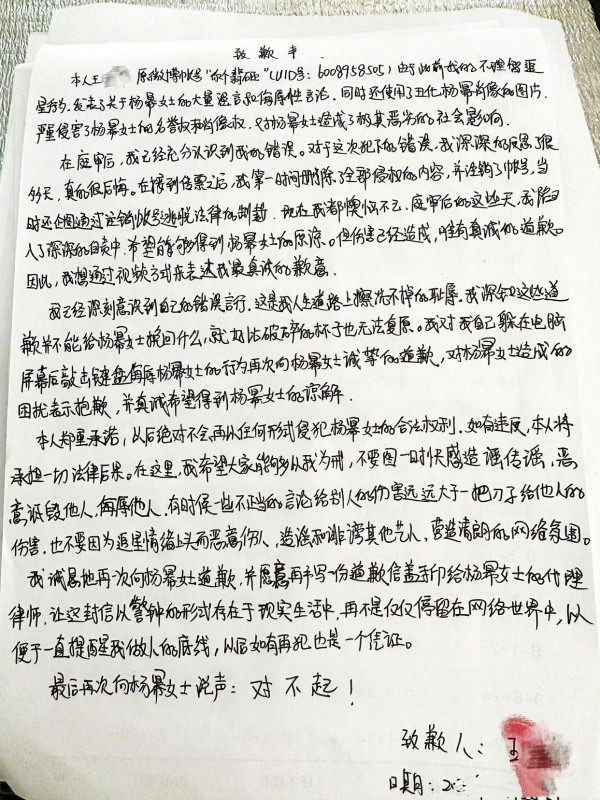 致歉书
本人王 原微博帐号"小翡砸"(UID号:6008958505)由于此前我的不理智追
星行为,发表了关于杨幂女士的大量谣言和侮辱性言论。同时还使用了丑化杨幂肖像的图片,
严重侵害了杨幂女士的名誉权和肖像权,对杨幂女士造成了极其恶劣的社会影响。
在庭审后,我已经充分认识到我的错误。对于这次犯下的错误,我深深的反思了很
多天,真的很后悔。在接到传票之后,我第一时间删除了全部侵权的内容,并注销了帐号,当
时还企图通过注销账号逃脱法律的制裁。现在我都懊恼不已。庭审后的这些天,我陷
入了深深的自责中,希望能够得到杨幂女士的原谅。但伤害已经造成,唯有真诚的道歉。
因此,我想通过视频方式来表达我最真诚的歉意。
我已经深刻意识到自己的错误言行。这是我人生道路上擦洗不掉的耻辱。我深知这些道
歉并不能给杨幂女士挽回什么,就好比破碎的杯子也无法复原。我对我自己躲在电脑
屏幕后敲击键盘侮辱杨幂女士的行为再次向杨幂女士诚挚的道歉,对杨幂女士造成的
困扰表示抱歉,并真诚希望得到杨幂女士的谅解。
本人郑重承诺,以后绝对不会再以任何形式侵犯杨幂女士的合法权利。如有违反,本人将
承担一切法律后果。在这里,我希望大家能够以我为戒,不要图一时快感造谣传谣,恶
意诋毁他人,侮辱他人,有时候一些不正当的言论给别人的伤害远远大于一把刀子给他人的
伤害,也不要因为追星情绪上头而恶意伤人,造谣和诽谤其他艺人,营造清朗的网络氛围。
我诚恳地再次向杨幂女士道歉,并愿意再手写一份道歉信盖手印给杨幂女士的代理
律师,让这封信以警钟的形式存在于现实生活中,再不是仅仅停留在网络世界中,以
便于一直提醒是我做人的底线,以后如有再犯也是一个凭证。
最后再次向杨幂女士说声:对不起!
致歉人:王
日期:20